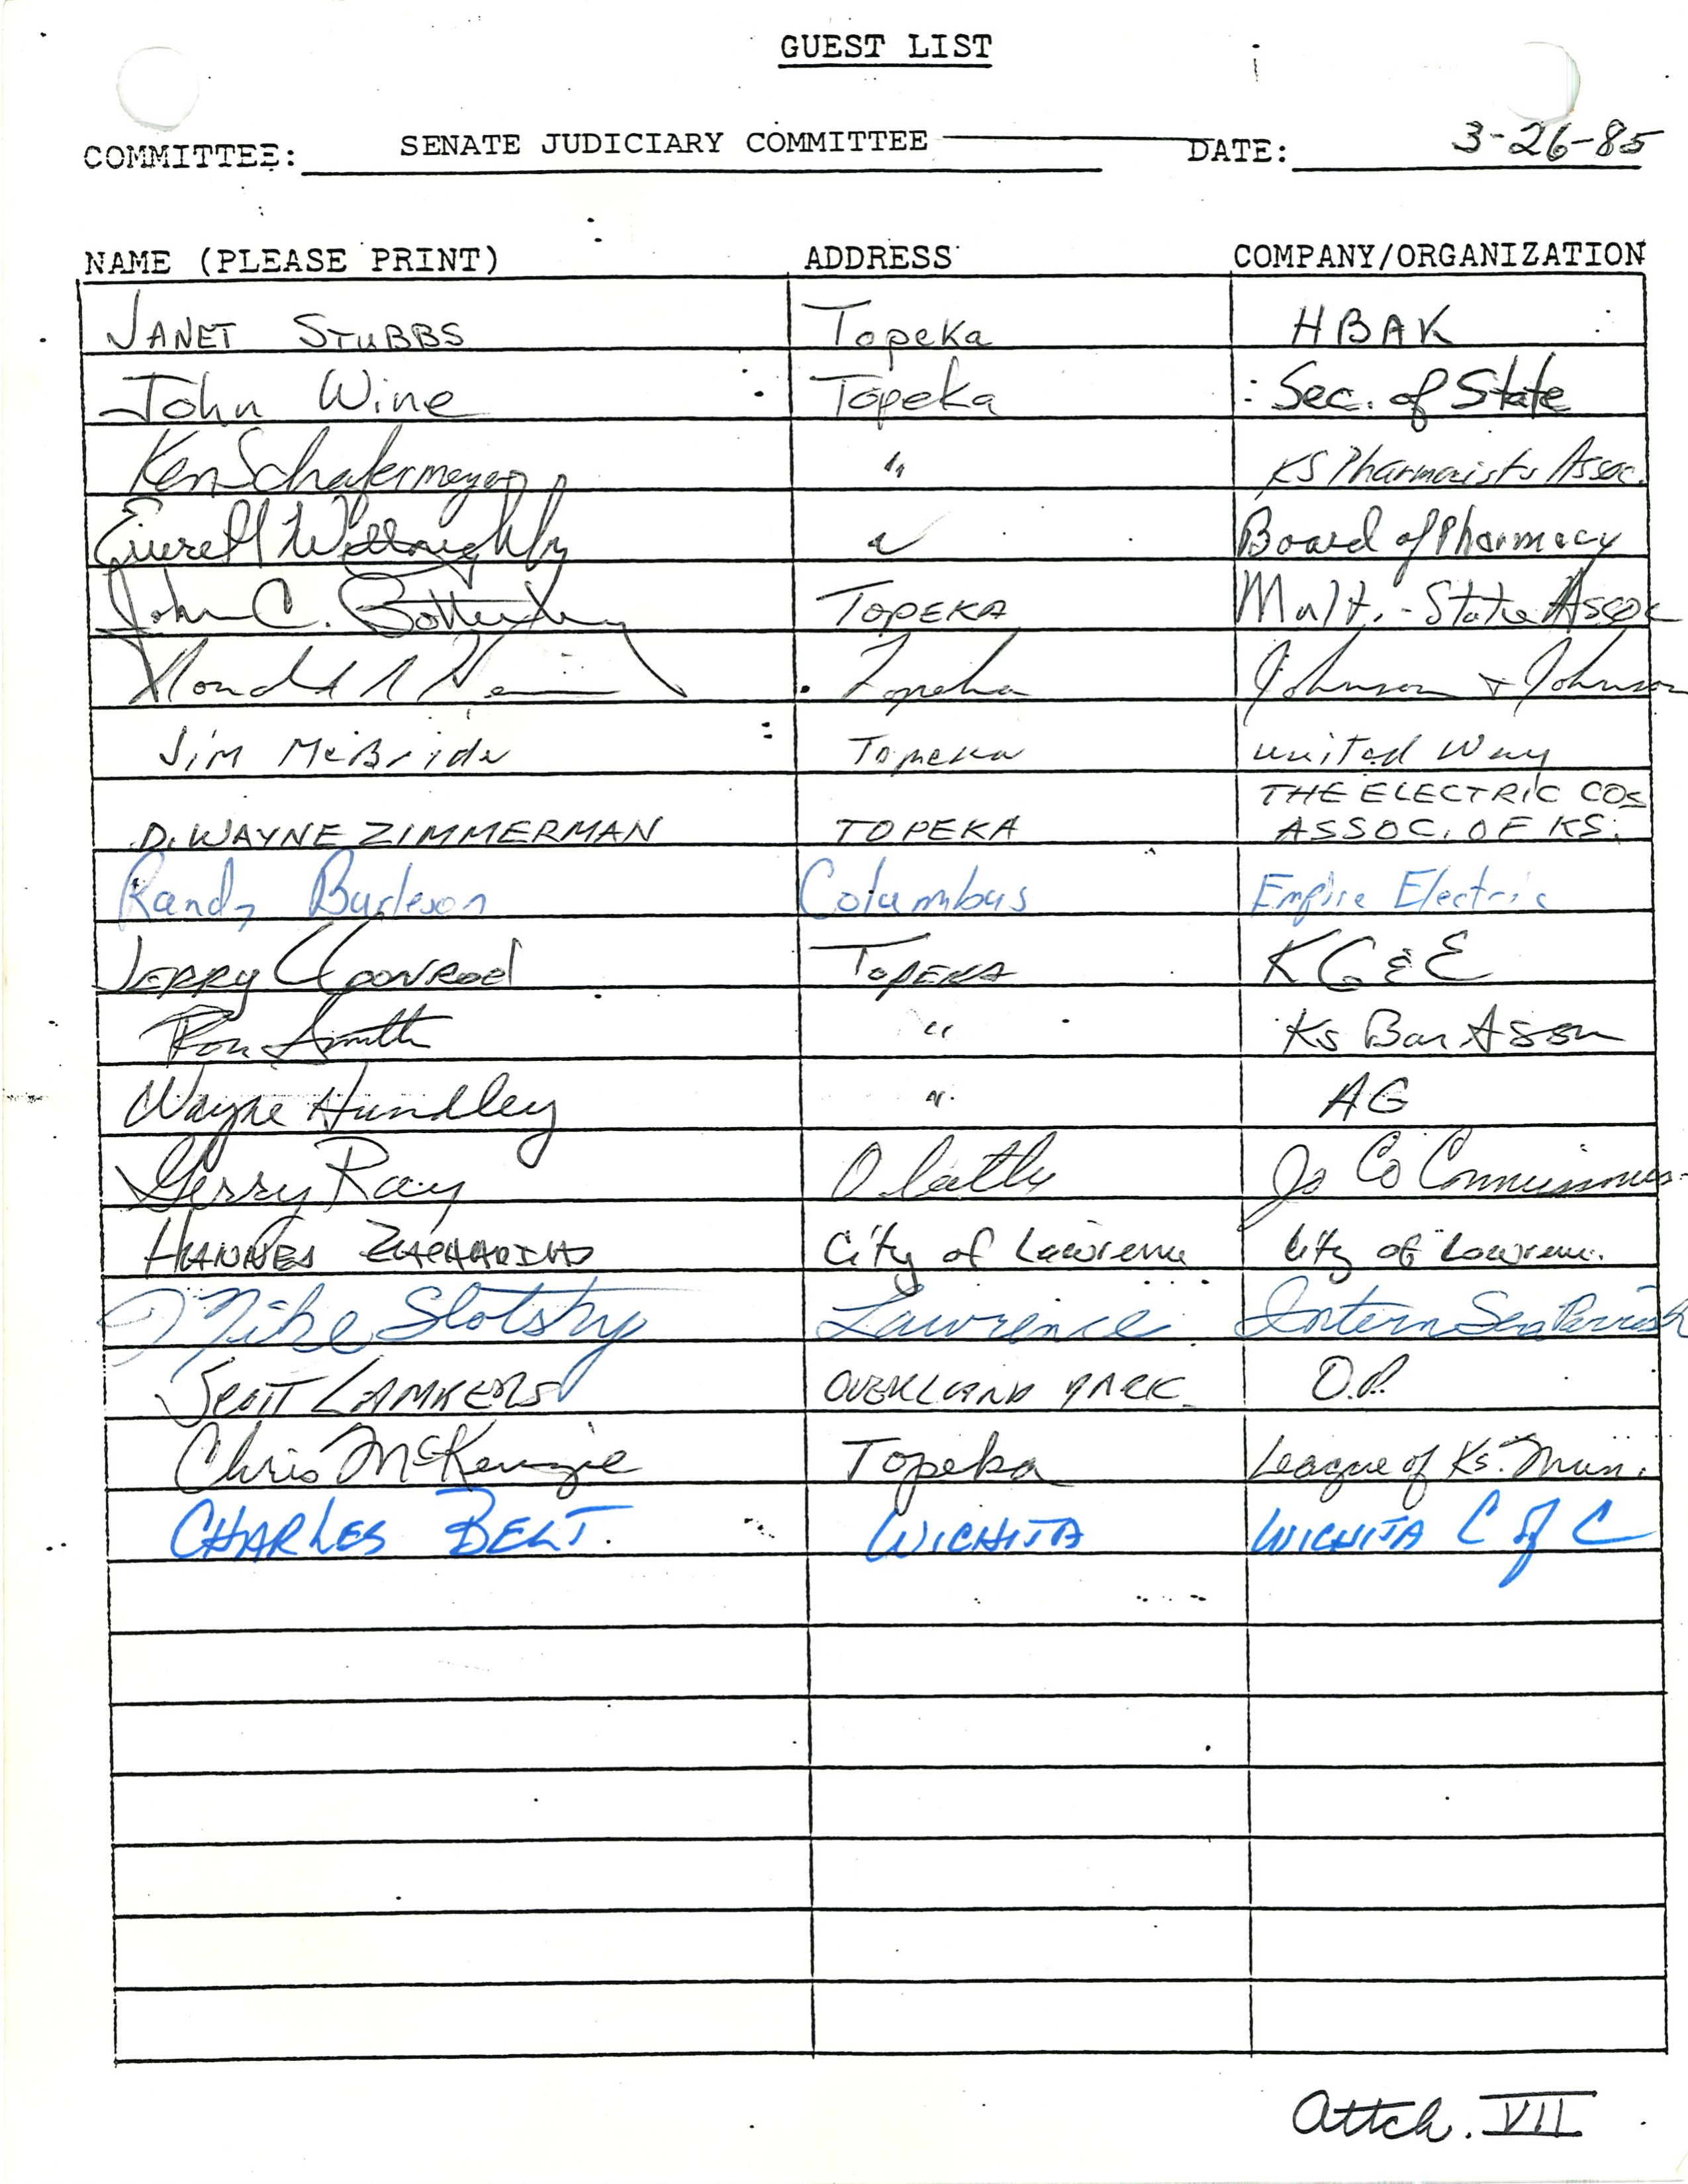 GUEST LIST
COMMITTEE: SENATE JUDICIARY COMMITTEE DATE: 3-26-85
NAME (PLEASE PRINT) ADDRESS COMPANY/ORGANIZATION
JANET STUBBS Topeka HBAK
John Wine Topeka Sec. of State
Ken Schafermeyer " KS Pharmacists Assoc.
Everett Willoughby " Board of Pharmacy
John C. Bottenberg TOPEKA Multi-State Assoc
Topeka Johnson + Johnson
Jim McBride Topeka United Way
D. WAYNE ZIMMERMAN TOPEKA THE ELECTRIC COS
ASSOC. OF KS.
Randy Burleson Columbus Empire Electric
JERRY COONROD TOPEKA KG&E
Ron Smith " Ks Bar Assn
Wayne Hundley " AG
Gerry Ray Olathe Jo Co Commissioners
HANNES ZACHARIAS City of Lawrence City of Lawrence
Mike Slotsky Lawrence Intern Sen Parrish
SCOTT LAMBERS OVERLAND PARK O.P.
Chris McKenzie Topeka League of Ks. Mun.
CHARLES BELT. WICHITA WICHITA C of C
Attch. VII